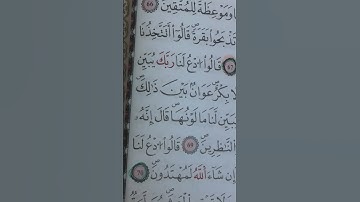 وَمَوْعِظَةً لِّلْمُتَّقِينَ ٦٦
تَذْبَحُوا۟ بَقَرَةً ۖ قَالُوٓا۟ أَتَتَّخِذُنَا
٦٧ قَالُوا۟ ٱدْعُ لَنَا رَبَّكَ يُبَيِّن
بِكْرٌ عَوَانٌۢ بَيْنَ ذَٰلِكَ ۖ
يُبَيِّن لَّنَا مَا لَوْنُهَا ۚ قَالَ إِنَّهُۥ
ٱلنَّـٰظِرِينَ ٦٩ قَالُوا۟ ٱدْعُ لَنَا
إِن شَآءَ ٱللَّهُ لَمُهْتَدُونَ ٧٠